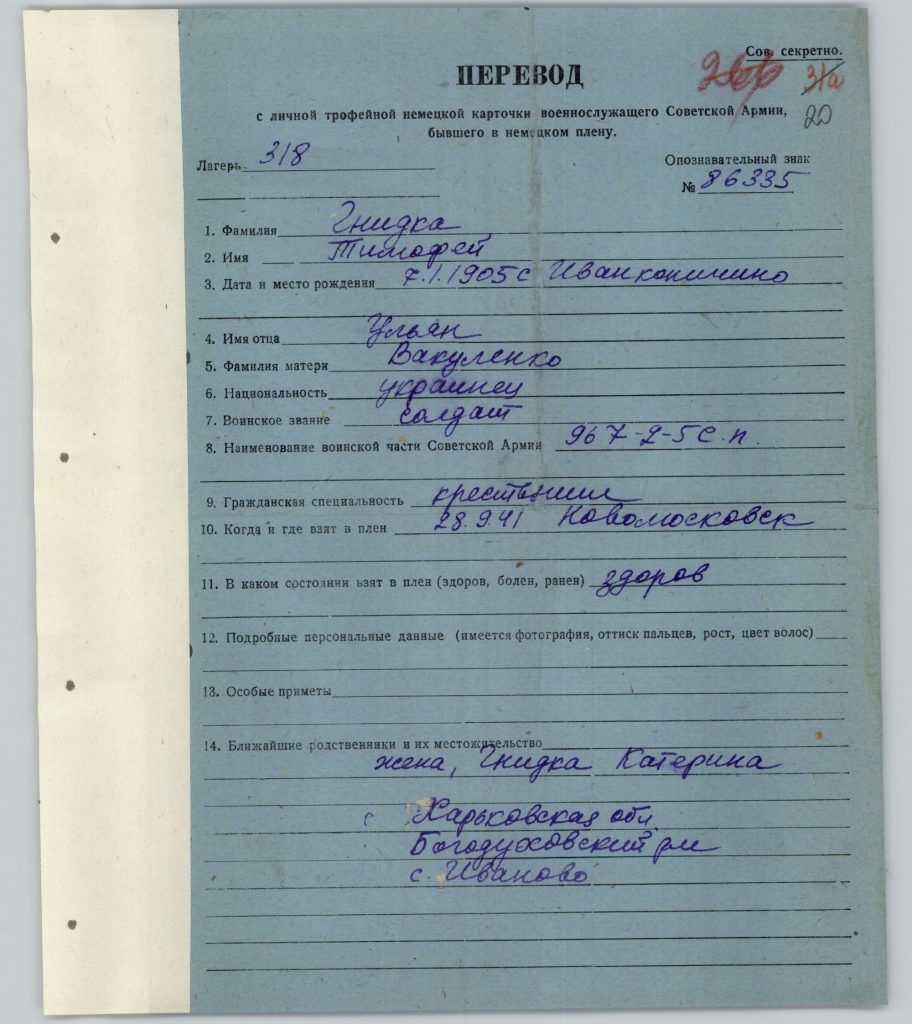 Сов. секретно.
31а
20
ПЕРЕВОД
с личной трофейной немецкой карточки военнослужащего Советской Армии,
бывшего в немецком плену.
Лагерь 318
Опознавательный знак
№ 86335
1. Фамилия Гнидка
2. Имя Тимофей
3. Дата и место рождения 7.1.1905 с
4. Имя отца Ульян
5. Фамилия матери Вакуленко
6. Национальность украинец
7. Воинское звание солдат
8. Наименование воинской части Советской Армии 967-2-5 с.п.
9. Гражданская специальность
10. Когда и где взят в плен 28.9.41 Новомосковск
11. В каком состоянии взят в плен (здоров, болен, ранен) здоров
12. Подробные персональные данные (имеется фотография, оттиск пальцев, рост, цвет волос)
13. Особые приметы
14. Ближайшие родственники и их местожительство
жена, Гнидка Катерина
Харьковская обл.
Богодуховский
с. Иваново